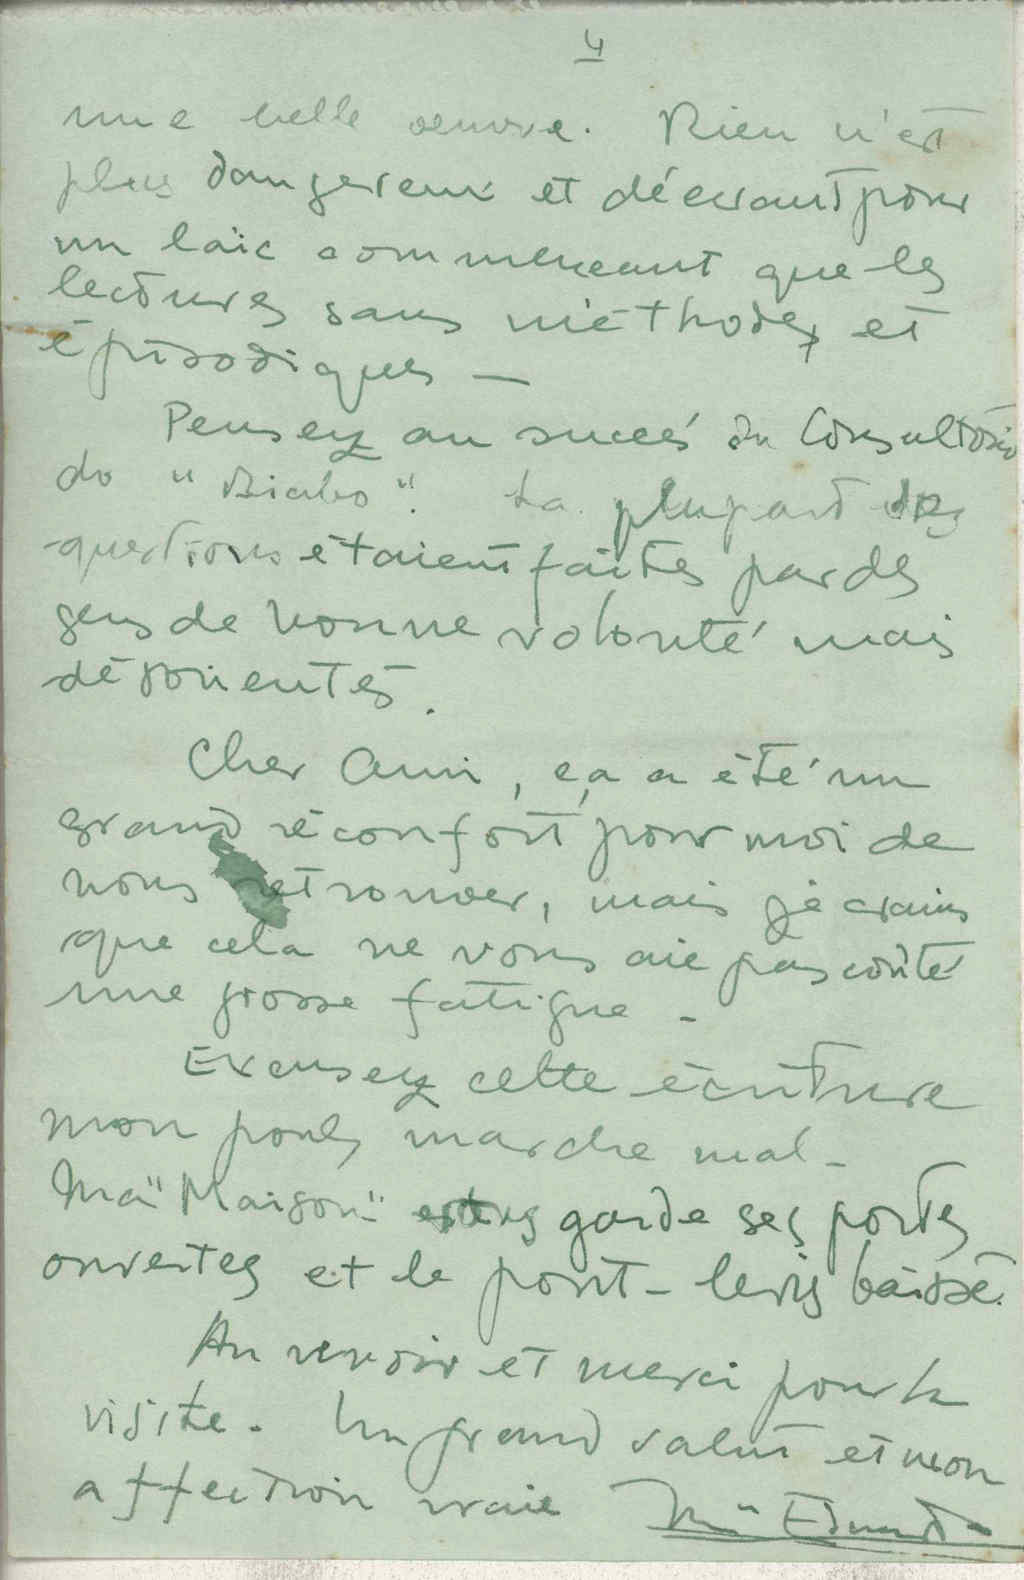 4
une belle oeuvre. Rien n'est
plus dangereux et décevant pour
un laïc commencant que les
lectures sans méthodes et
épisodiques —
Pensez au succés du Consultório
do "Diabo". La plupart des
questions étaient faites par des
gens de bonne volonté mais
désorientés.
Cher Ami, ça a été un
grand réconfort pour moi de
vous retrouver, mais je crains
que cela ne vous aie pas coûté
une grosse fatigue -
Excusez cette écriture
mon pouls marche mal -
Ma "Maison" garde ses portes
ouvertes et le pont-levis baissé.
Au revoir et merci pour la
visite. Un grand salut et mon
affection vraie